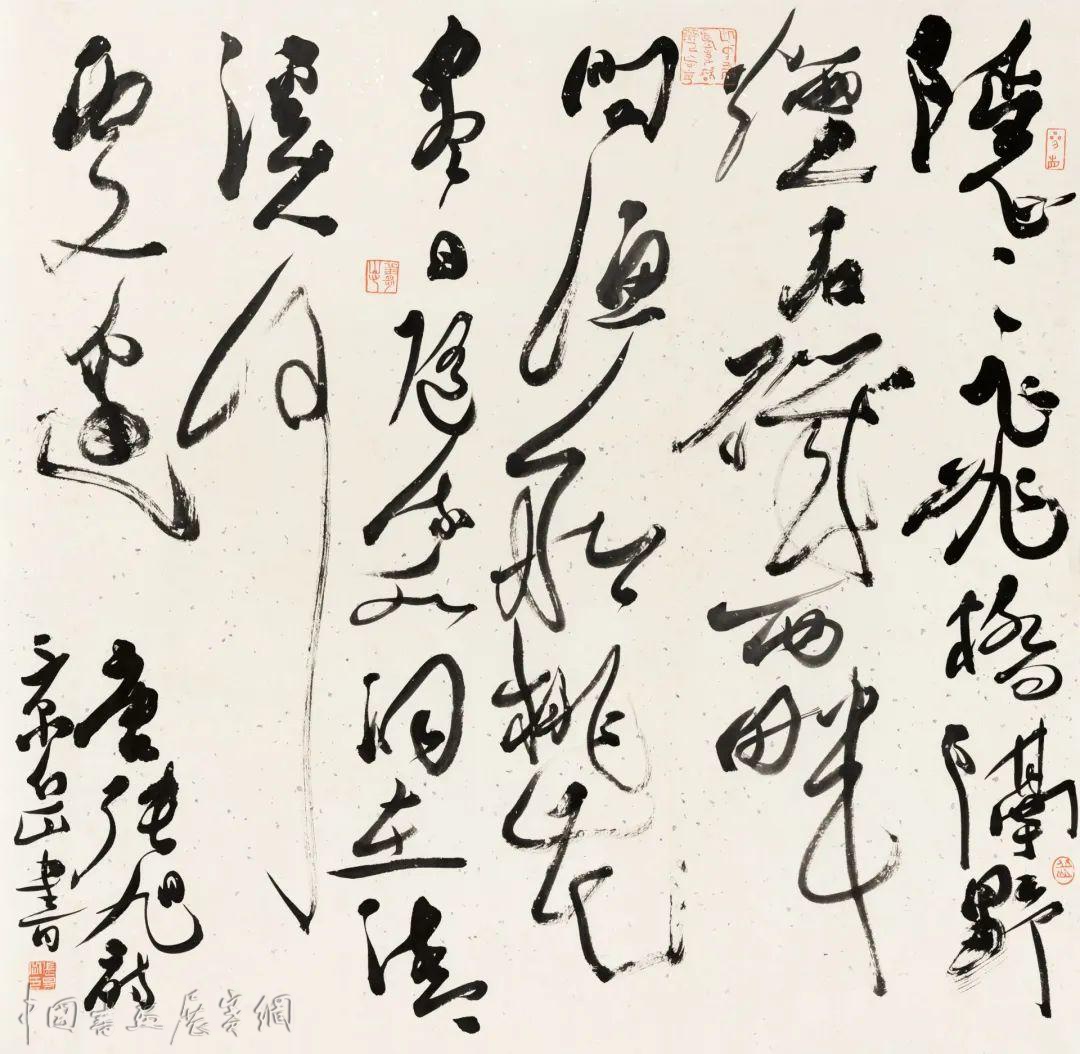 隱隱飛橋隔野
煙石磯西畔
問漁船桃花
盡日隨流水洞在清
溪何
處邊
唐張旭詩
京書
中國書法展賽網